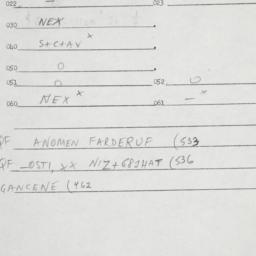 022 — 023
030 NEX
040 S+C+AV x
050 O
051 O 052 O
060 NEX x 061 — x
QF ANOMEN FARDERUF (533
QF -OSTI, xx NIZ+681HAT (536
GANCENE (462